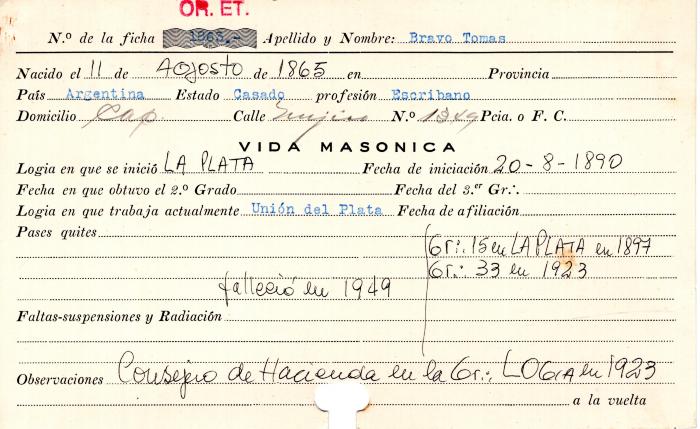 OR. ET.
N.º de la ficha 1863.- Apellido y Nombre: Bravo Tomas
Nacido el 11 de Agosto de 1865 en Provincia
País Argentina Estado Casado profesión Escribano
Domicilio Cap. Calle N.º 1349 Pcia. o F. C.
VIDA MASONICA
Logia en que se inició LA PLATA Fecha de iniciación 20-8-1890
Fecha en que obtuvo el 2.º Grado Fecha del 3.er Gr∴
Logia en que trabaja actualmente Unión del Plata Fecha de afiliación
Pases quites
Gr∴ 15 en LA PLATA en 1897
Gr∴ 33 en 1923
falleció en 1949
Faltas-suspensiones y Radiación
Observaciones Consejo de Hacienda en la Gr∴ LOGIA en 1923
a la vuelta